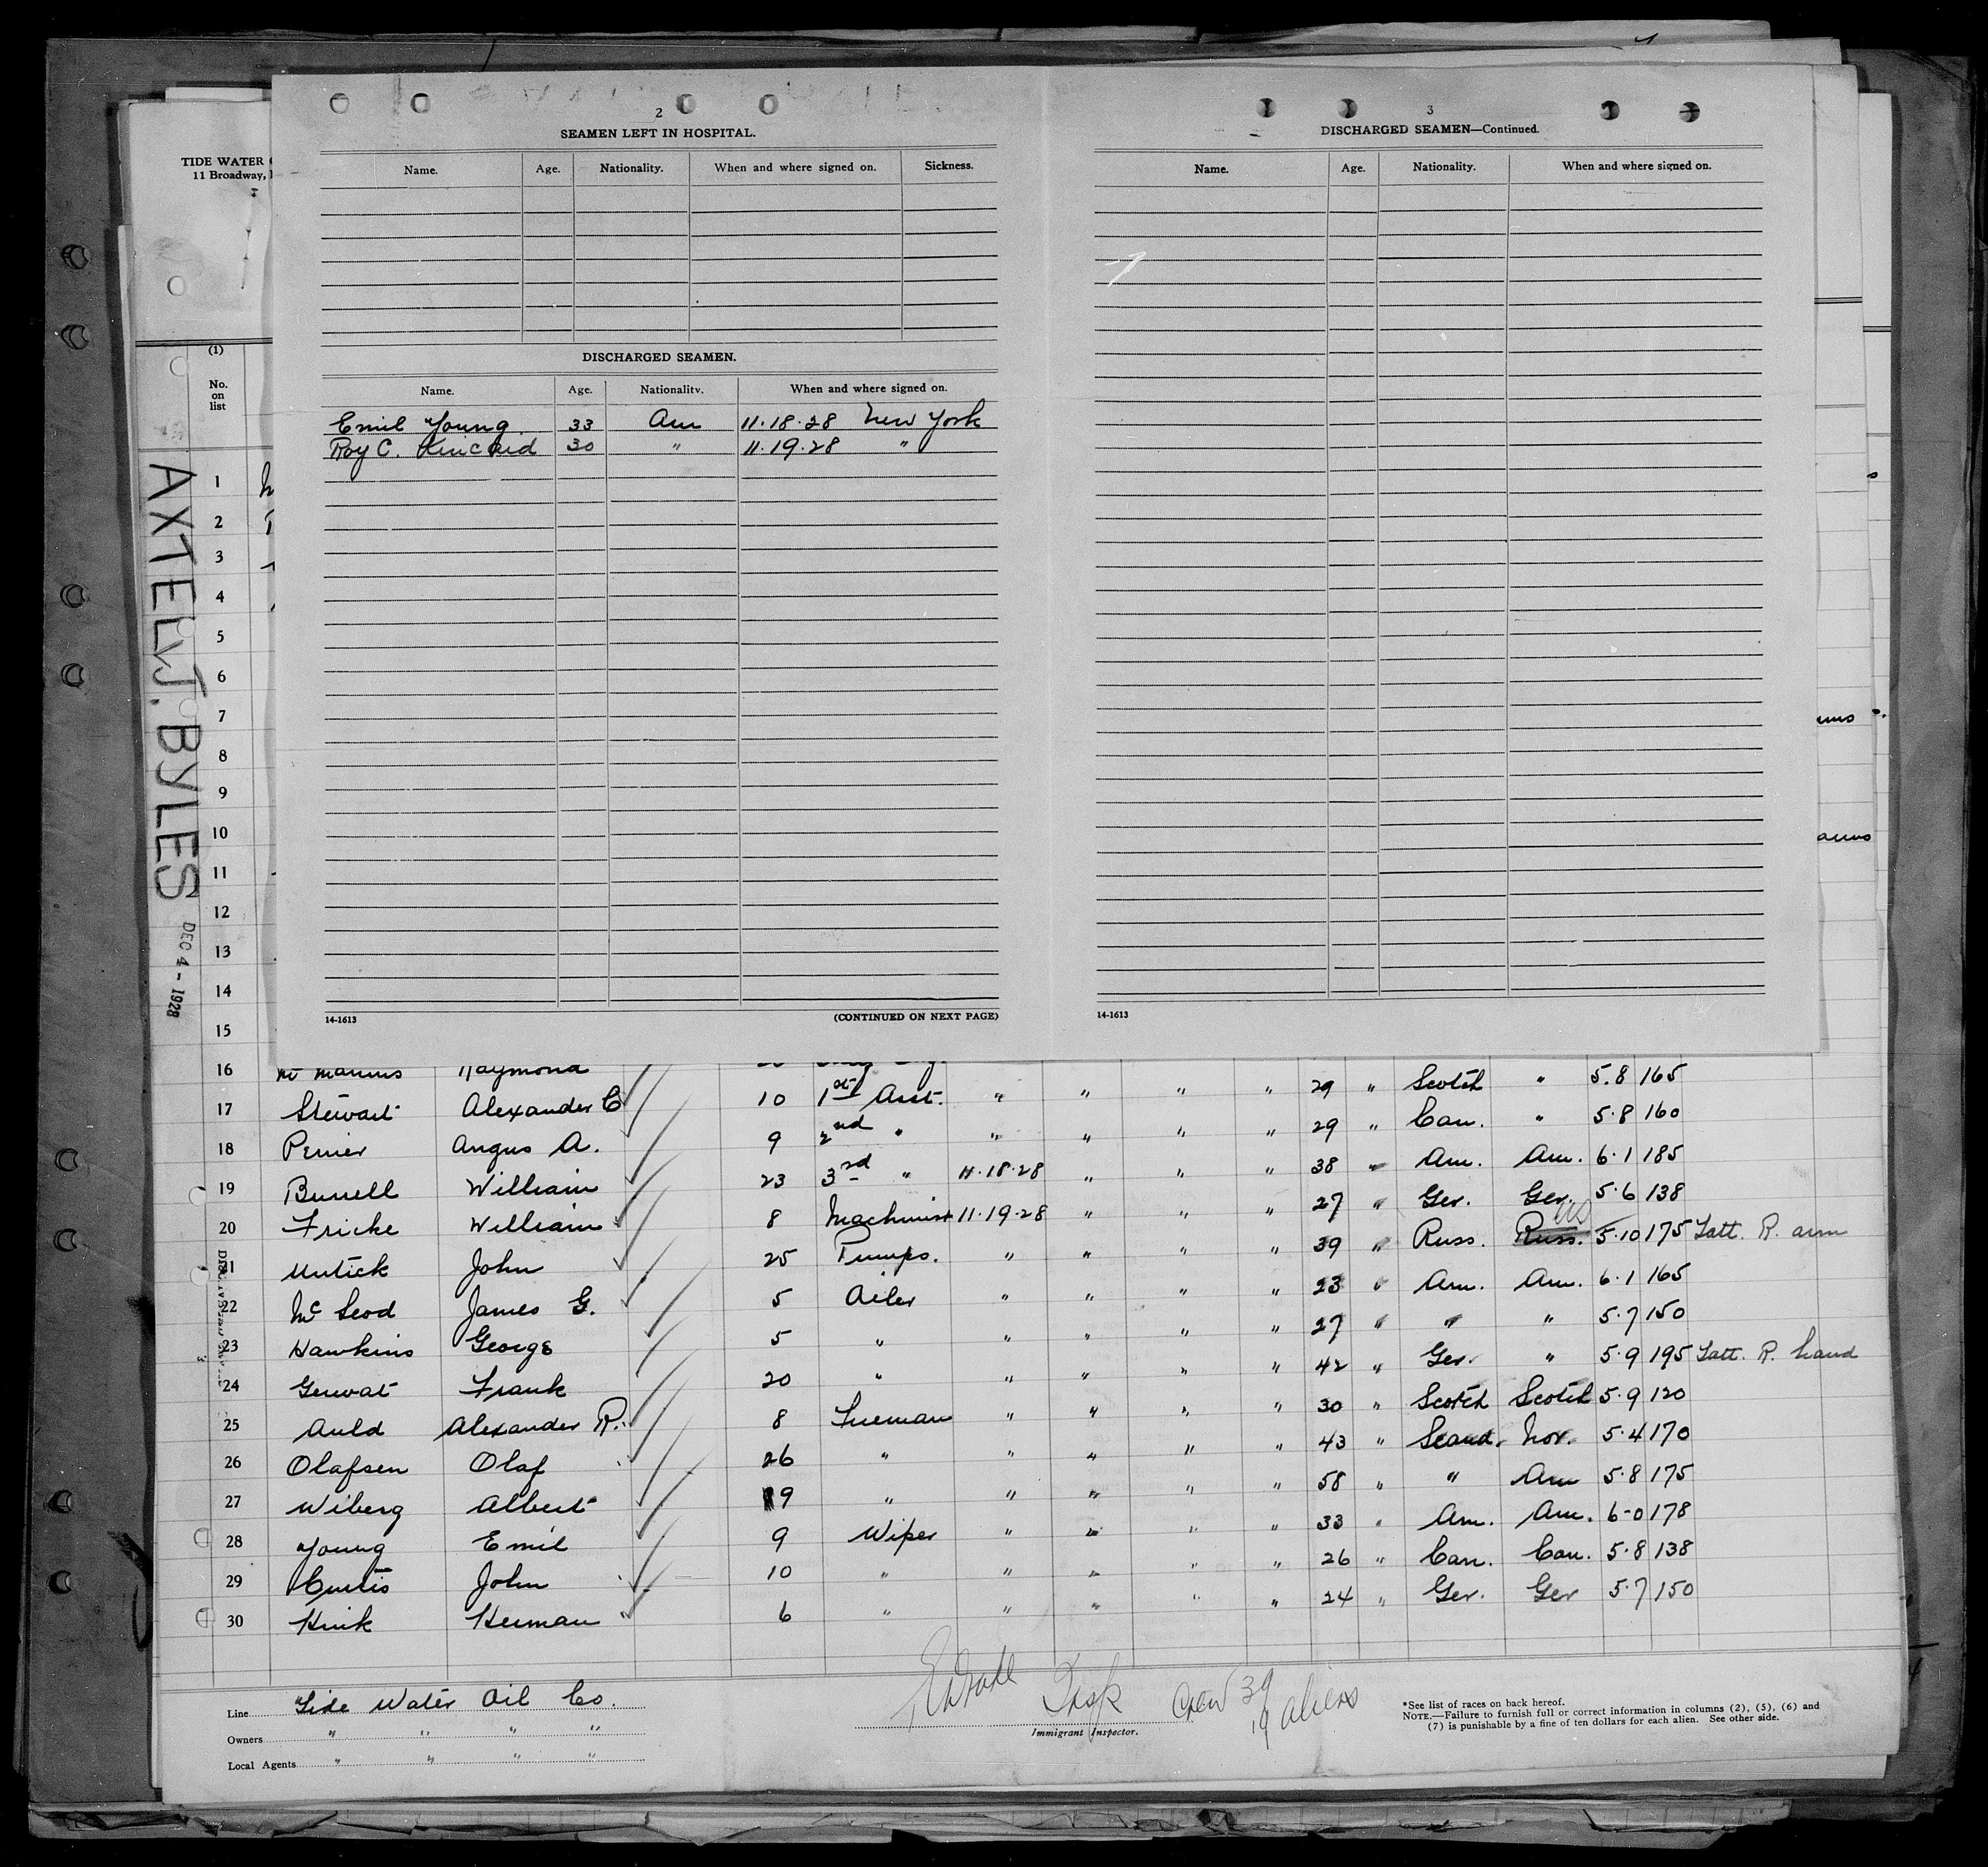 TIDE WATER
11 Broadway,
(1)
No.
on
list
AXTELL J. BYLES
DEC 4 - 1928
2
SEAMEN LEFT IN HOSPITAL.
Name. Age. Nationality. When and where signed on. Sickness.
DISCHARGED SEAMEN.
Name. Age. Nationality. When and where signed on.
Emil Young. 33 Am 11.18.28 New York
Roy C. Kincaid 30 " 11.19.28 "
14-1613 (CONTINUED ON NEXT PAGE)
3
DISCHARGED SEAMEN—Continued.
Name. Age. Nationality. When and where signed on.
14-1613
1
2
3
4
5
6
7
8
9
10
11
12
13
14
15
16 McManus Raymond
17 Stewart Alexander C 10 1st Asst. " " " " 29 " Scotch " 5.8 165
18 Angus A. 9 2nd " " " " " 29 " Can. " 5.8 160
19 Burrell William 23 3rd " 11.18.28 " " " 38 " Am. Am. 6.1 185
20 Fricke William 8 Machinist 11.19.28 " " " 27 " Ger. Ger. 5.6 138
21 Untick John 25 Pumps. " " " " 39 " Russ. Russ. 5.10 175 Tatt. R. arm
22 McLeod James G. 5 Oiler " " " " 23 " Am. Am. 6.1 165
23 Hawkins George 5 " " " " " 27 " " " 5.7 150
24 Gerwat Frank 20 " " " " " 42 " Ger. " 5.9 195 Tatt. R. hand
25 Auld Alexander R. 8 Fireman " " " " 30 " Scotch Scotch 5.9 120
26 Olafsen Olaf 26 " " " " " 43 " Scand. Nor. 5.4 170
27 Wiberg Albert 19 " " " " " 58 " " Am 5.8 175
28 Young Emil 9 Wiper " " " " 33 " Am. Am. 6-0 178
29 Curtis John 10 " " " " " 26 " Can. Can. 5.8 138
30 Hink Herman 6 " " " " " 24 " Ger. Ger 5.7 150
Line Tide Water Oil Co.
Owners " " " "
Local Agents " " " "
Insp Crew 39
19 aliens
Immigrant Inspector.
*See list of races on back hereof.
NOTE.—Failure to furnish full or correct information in columns (2), (5), (6) and
(7) is punishable by a fine of ten dollars for each alien. See other side.
arms